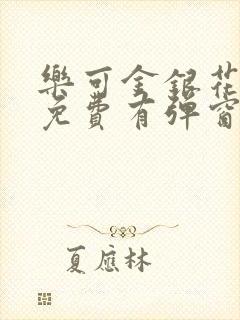 樂可金銀花
免費有彈窗
夏應林